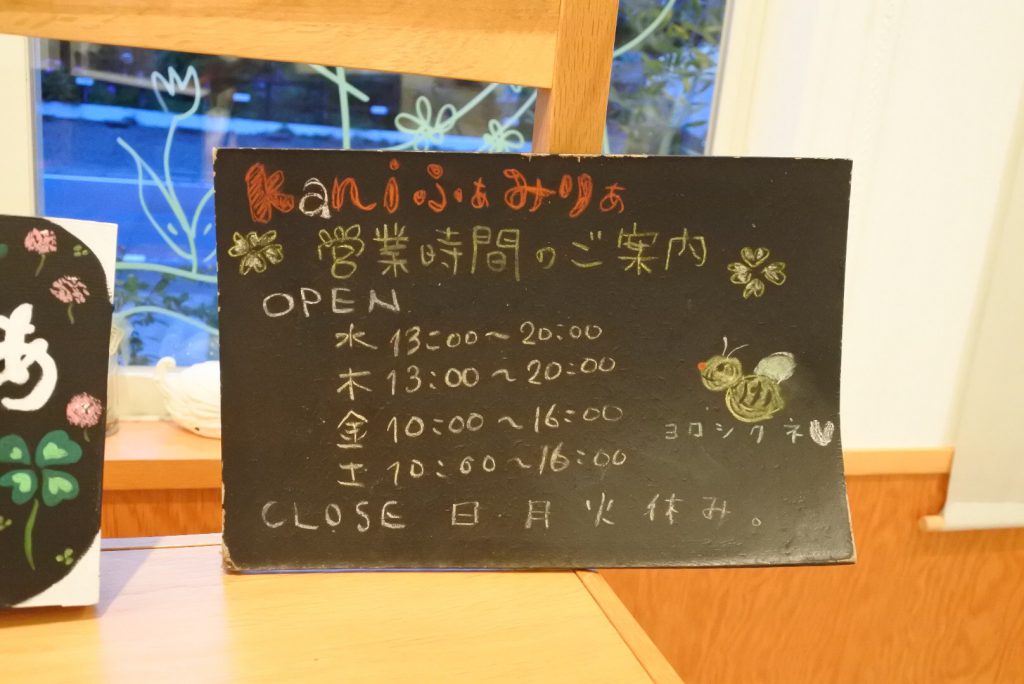 kaniふぁみりぁ
営業時間のご案内
OPEN
水 13:00～20:00
木 13:00～20:00
金 10:00～16:00
土 10:00～16:00
ヨロシクネ
CLOSE 日 月 火 休み。
あ